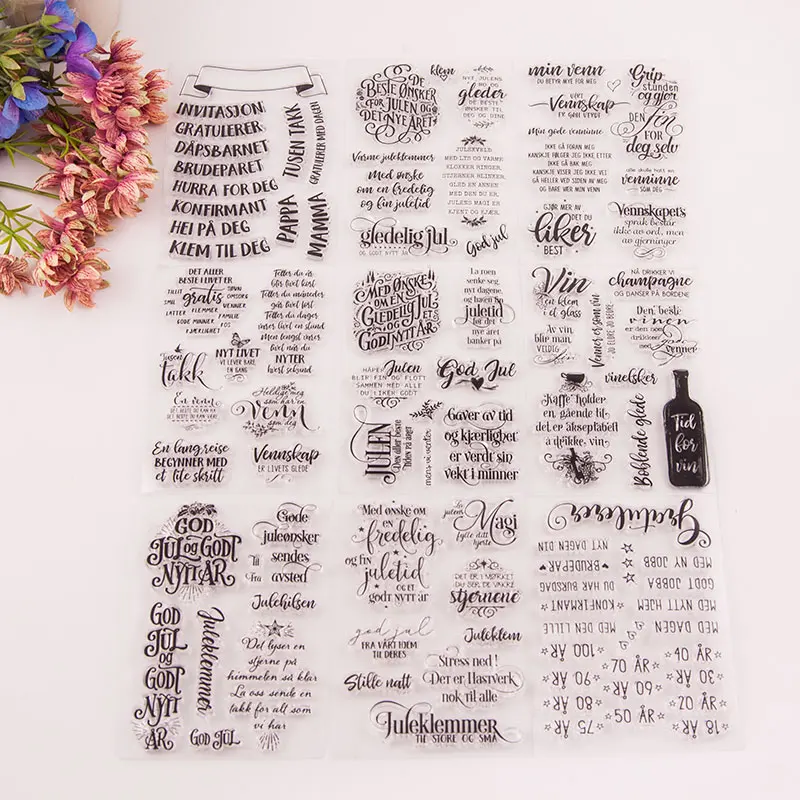 INVITASJON
GRATULERER
DÅPSBARNET
BRUDEPARET
HURRA FOR DEG
KONFIRMANT
HEI PÅ DEG
KLEM TIL DEG
TUSEN TAKK
GRATULERER MED DAGEN
PAPPA
MAMMA
DE
BESTE ØNSKER
FOR JULEN OG
DET NYE ÅRET
klem
NYT JULENS
RO OG
gleder
DE BESTE
ØNSKER TIL
DEG OG DINE
Varme juleklemmer
Med ønske
om en fredelig
og fin juletid
JULEKVELD
MED LYS OG VARME
KLOKKER RINGER,
STJERNER BLINKER
GLEDE OG SANG
MED DEN DU ER,
JULENS MAGI ER
KJENT OG KJÆR.
gledelig jul
OG GODT NYTT ÅR
God jul
min venn
DU BETYR MYE FOR MEG
VÅRT
Vennskap
ER GULL VERDT
Grip
stunden
og gjør
DEN
fin
FOR
deg selv
Min gode venninne
IKKE GÅ FORAN MEG
KANSKJE FØLGER JEG IKKE ETTER
IKKE GÅ BAK MEG
KANSKJE VISER JEG IKKE VEI
GÅ HELLER VED SIDEN AV MEG
OG BARE VÆR MIN VENN
alle skulle hatt en
venninne
SOM DEG
GJØR MER AV
DET DU
liker
BEST
Vennskapets
språk består
ikke av ord, men
av gjerninger
DET ALLER
BESTE I LIVET ER
gratis
TILLIT
SØVN
SMIL
OMSORG
VENNER
LATTER
KLEMMER
FAMILIE
GODE MINNER
FOS
KJÆRLIGHET
Teller du år
blir livet kort
Teller du måneder
går livet fort
Teller du dager
varer livet en stund
Men lengst varer
livet når du
NYTER
hvert sekund
Tusen
takk
NYTT LIVET
VI LEVER BARE
EN GANG
En venn
DET BESTE DU KAN HA
DET BESTE DU KAN VÆRE
Heldige meg
som har en
Venn
som deg
En lang reise
BEGYNNER MED
et lite skritt
Vennskap
ER LIVETS GLEDE
MED ØNSKE
OM EN
GLEDELIG JUL
OG ET
GODT NYTT ÅR
La roen
senke seg,
nyt dagene
og ha en fin
juletid
før det
nye året
banker på
HÅPER Julen
BLIR FIN OG FLOTT
SAMMEN MED ALLE
DU LIKER GODT
God Jul
JULEN
Den aller beste
tiden på året
mens vi venter
Gaver av tid
og kjærlighet
er verdt sin
vekt i minner
Vin
en klem
i et glass
Av vin
blir man
VELDIG
Venner er som vin
JO ELDRE JO BEDRE
NÅ DRIKKER VI
champagne
OG DANSER PÅ BORDENE
Den beste
vinen
er den neste
drikker
med
venner
vinelsker
Kaffe holder
en gående til
det er akseptabelt
å drikke vin
Boblende glede
Tid
for
vin
GOD
JUL OG GODT
NYTT ÅR
Gode
juleønsker
Til
sendes
Fra
avsted
Julehilsen
GOD
JUL
og
GODT
NYTT
ÅR
Juleklemmer
Det lyser en
stjerne på
himmelen så klar
La oss sende en
takk for alt som
vi har
GOD JUL
Med ønske om
en
fredelig
og fin
juletid
OG ET
godt nytt år
La
julens
Magi
fylle ditt
hjerte
DET ER I MØRKET
DU SER DE VAKRE
stjernene
god jul
FRA VÅRT HJEM
TIL DERES
Juleklem
Stille natt
Stress ned!
Det er Hastverk
nok til alle
Juleklemmer
TIL STORE OG SMÅ
Gratulerer
NYT DAGEN DIN
MED NY JOBB
BRUDEPAR
GODT JOBBA
DU HAR BURSDAG
MED NYTT HJEM
KONFIRMANT
MED DAGEN
MED DEN LILLE
100 ÅR
40 ÅR
70 ÅR
90 ÅR
30 ÅR
60 ÅR
80 ÅR
20 ÅR
50 ÅR
75 ÅR
18 ÅR